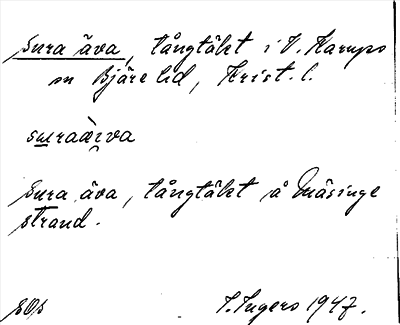 Sura äva, tångtäkt i V. Karups
sn Bjäre hd, Krist. l.
suraàrva
Sura äva, tångtäkt å Mäsinge
strand.
I. Ingers 1947.